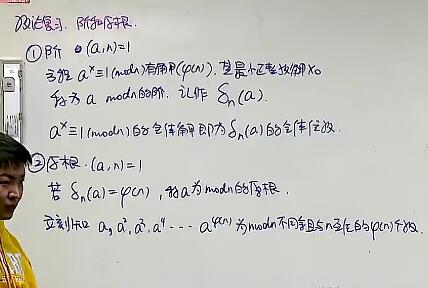 数论复习. 阶和原根.
① 阶 (a,n)=1
方程 a^x≡1(modn)有解(φ(n)). 其最小正整数解x₀
称为 a modn的阶. 记作 δₙ(a).
a^x≡1(modn)的全体解即为δₙ(a)的全体倍数.
② 原根. (a,n)=1
若 δₙ(a)=φ(n), 称a为modn的原根.
立刻知 a, a², a³, a⁴ ··· a^φ(n) 为modn不同余且与n互质的φ(n)个数.